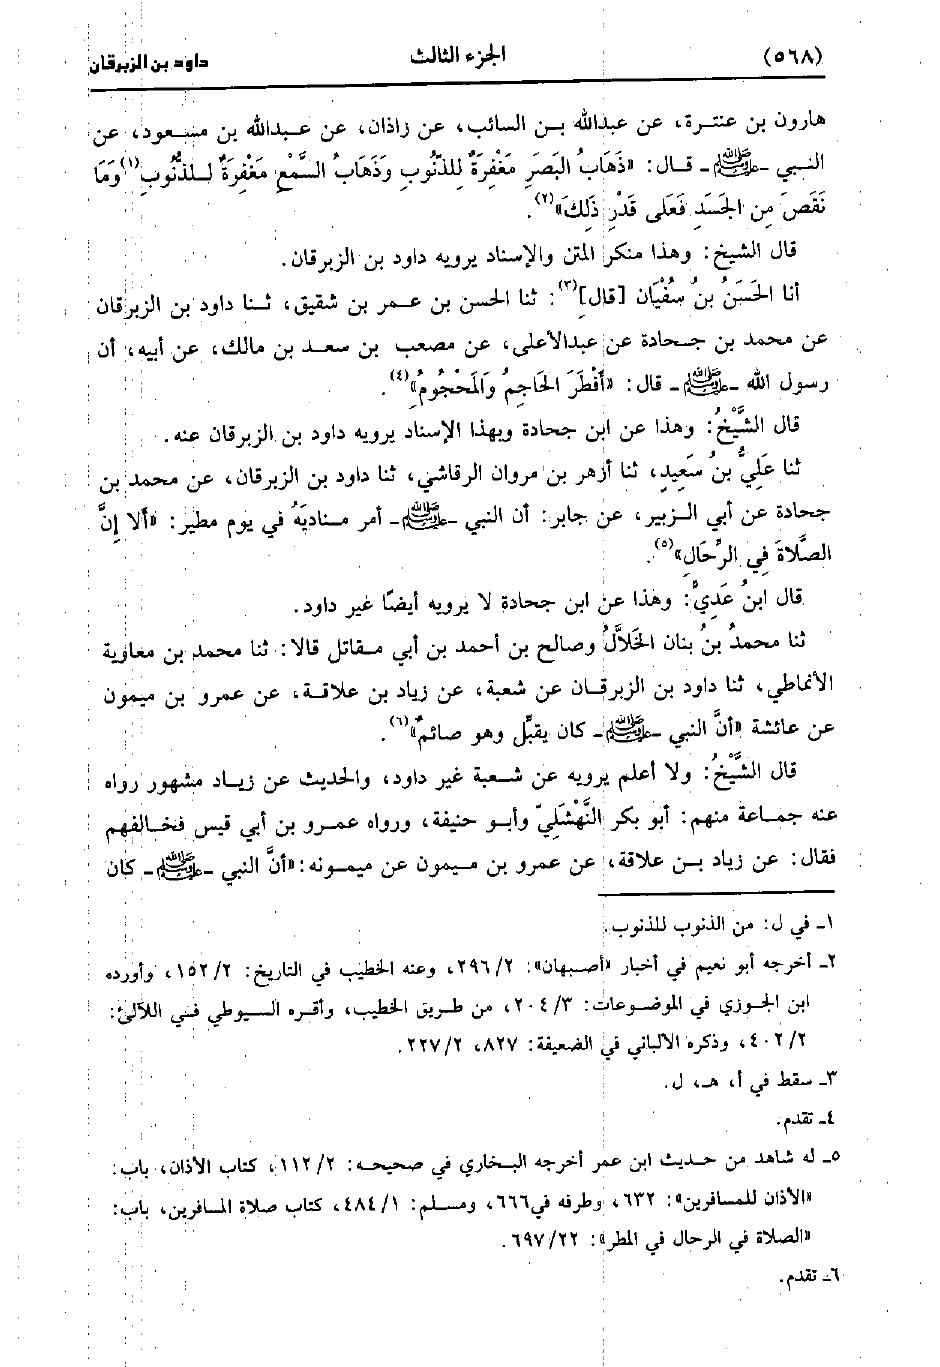 (٥٦٨) الجزء الثالث داود بن الزبرقان
هارون بن عنترة، عن عبدالله بن السائب، عن زاذان، عن عبدالله بن مسعود، عن
النبي -ﷺ- قال: «ذَهَابُ البَصَرِ مَغْفِرَةٌ لِلذُّنُوبِ وَذَهَابُ السَّمْعِ مَغْفِرَةٌ لِلذُّنُوبِ(١) وَمَا
نَقَصَ مِن الجَسَدِ فَعَلى قَدْرِ ذَلِكَ»(٢).
قال الشيخ: وهذا منكر المتن والإسناد يرويه داود بن الزبرقان.
أنا الحَسَنُ بنُ سُفْيَان [قال](٣): ثنا الحسن بن عمر بن شقيق، ثنا داود بن الزبرقان
عن محمد بن جحادة عن عبدالأعلى، عن مصعب بن سعد بن مالك، عن أبيه، أن
رسول الله -ﷺ- قال: «أَفْطَرَ الحَاجِمُ وَالمَحْجُومُ»(٤).
قال الشَّيْخُ: وهذا عن ابن جحادة وبهذا الإسناد يرويه داود بن الزبرقان عنه.
ثنا عَلِيُّ بنُ سَعِيدٍ، ثنا أزهر بن مروان الرقاشي، ثنا داود بن الزبرقان، عن محمد بن
جحادة عن أبي الزبير، عن جابر: أن النبي -ﷺ- أمر مناديَهُ في يوم مطير: «ألا إنَّ
الصَّلاةَ فِي الرِّحَالِ»(٥).
قال ابنُ عَدِيٍّ: وهذا عن ابن جحادة لا يرويه أيضًا غير داود.
ثنا محمدُ بنُ بنان الخَلاَّلُ وصالح بن أحمد بن أبي مقاتل قالا: ثنا محمد بن معاوية
الأنماطي، ثنا داود بن الزبرقان عن شعبة، عن زياد بن علاقة، عن عمرو بن ميمون
عن عائشة «أنَّ النبي -ﷺ- كان يقبِّل وهو صائمٌ»(٦).
قال الشَّيْخُ: ولا أعلم يرويه عن شعبة غير داود، والحديث عن زياد مشهور رواه
عنه جماعة منهم: أبو بكر النَّهْشَلِيّ وأبو حنيفة، ورواه عمرو بن أبي قيس فخالفهم
فقال: عن زياد بن علاقة، عن عمرو بن ميمون عن ميمونه: «أنَّ النبي -ﷺ- كان
١- في ل: من الذنوب للذنوب.
٢- أخرجه أبو نعيم في أخبار «أصبهان»: ٢/ ٢٩٦، وعنه الخطيب في التاريخ: ٢/ ١٥٢، وأورده
ابن الجوزي في الموضوعات: ٣/ ٢٠٤، من طريق الخطيب، وأقره السيوطي في اللآلئ:
٢/ ٤٠٢، وذكره الألباني في الضعيفة: ٨٢٧، ٢/ ٢٢٧.
٣- سقط في أ، هـ، ل.
٤- تقدم.
٥- له شاهد من حديث ابن عمر أخرجه البخاري في صحيحه: ٢/ ١١٢، كتاب الأذان، باب:
«الأذان للمسافرين»: ٦٣٢، وطرفه في٦٦٦، ومسلم: ١/ ٤٨٤، كتاب صلاة المسافرين، باب:
«الصلاة في الرحال في المطر»: ٢٢/ ٦٩٧.
٦- تقدم.